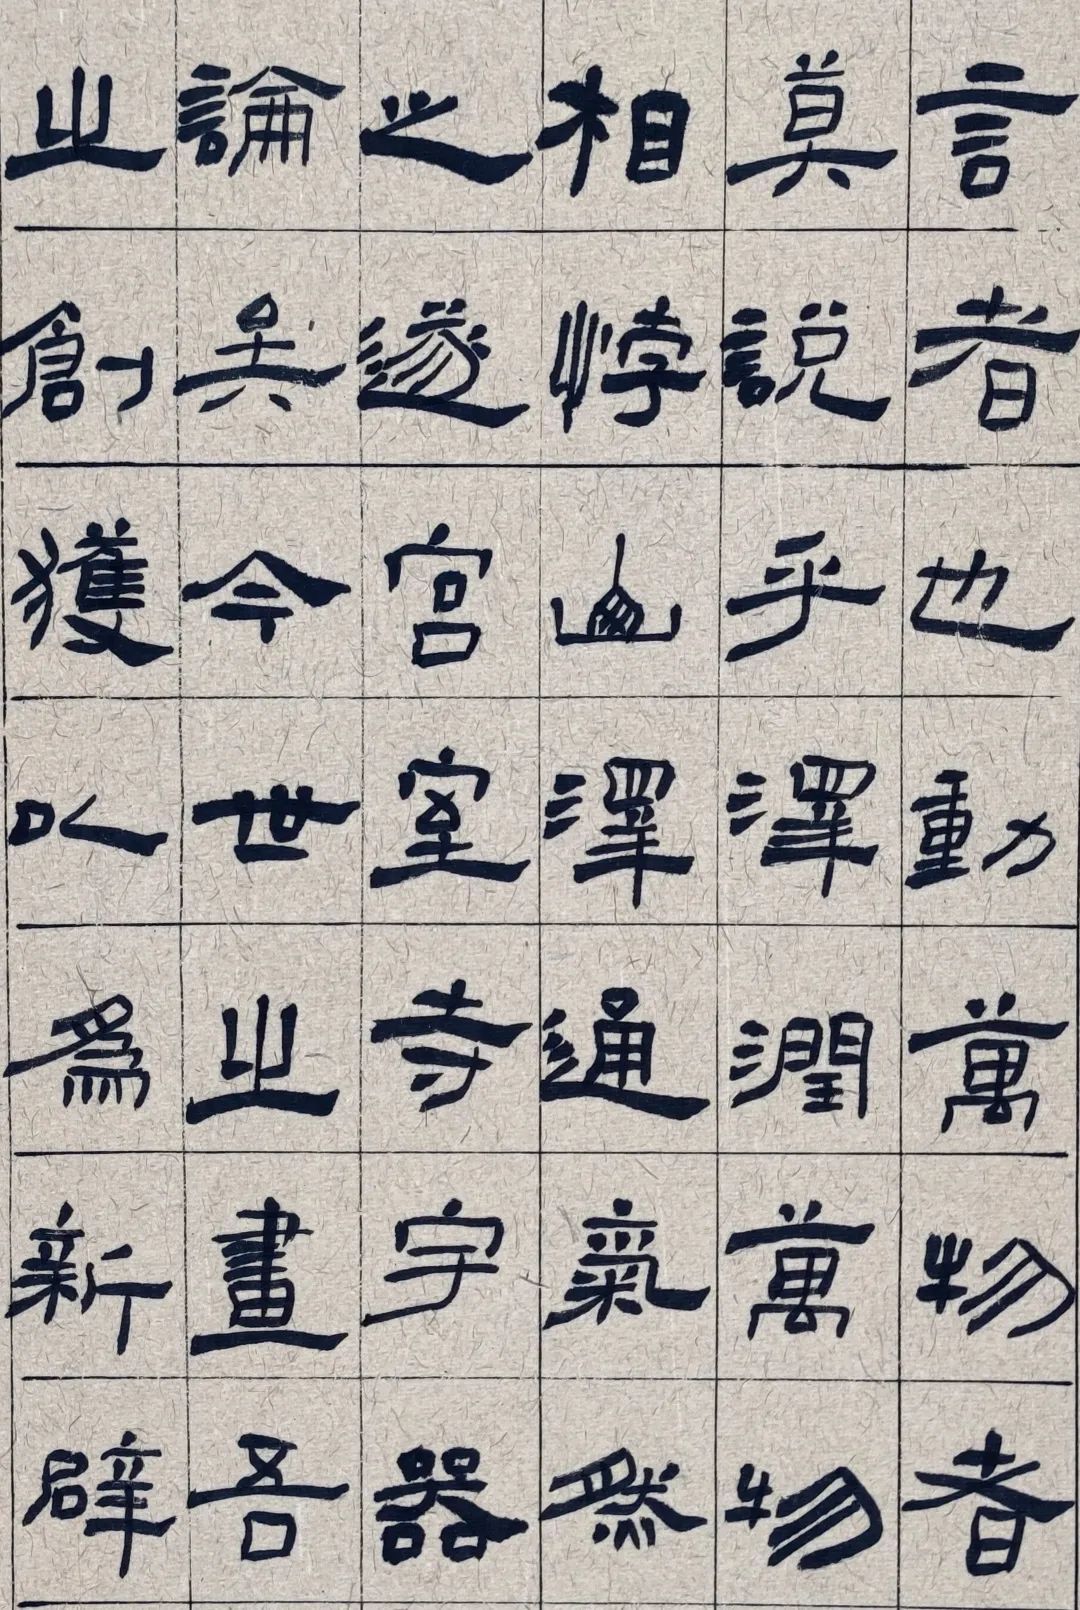 言者也動萬物者
莫說乎澤潤萬物
相悖山澤通氣然
之遂宮室寺宇器
論矣今世之畫吾
之創獲以爲新辟